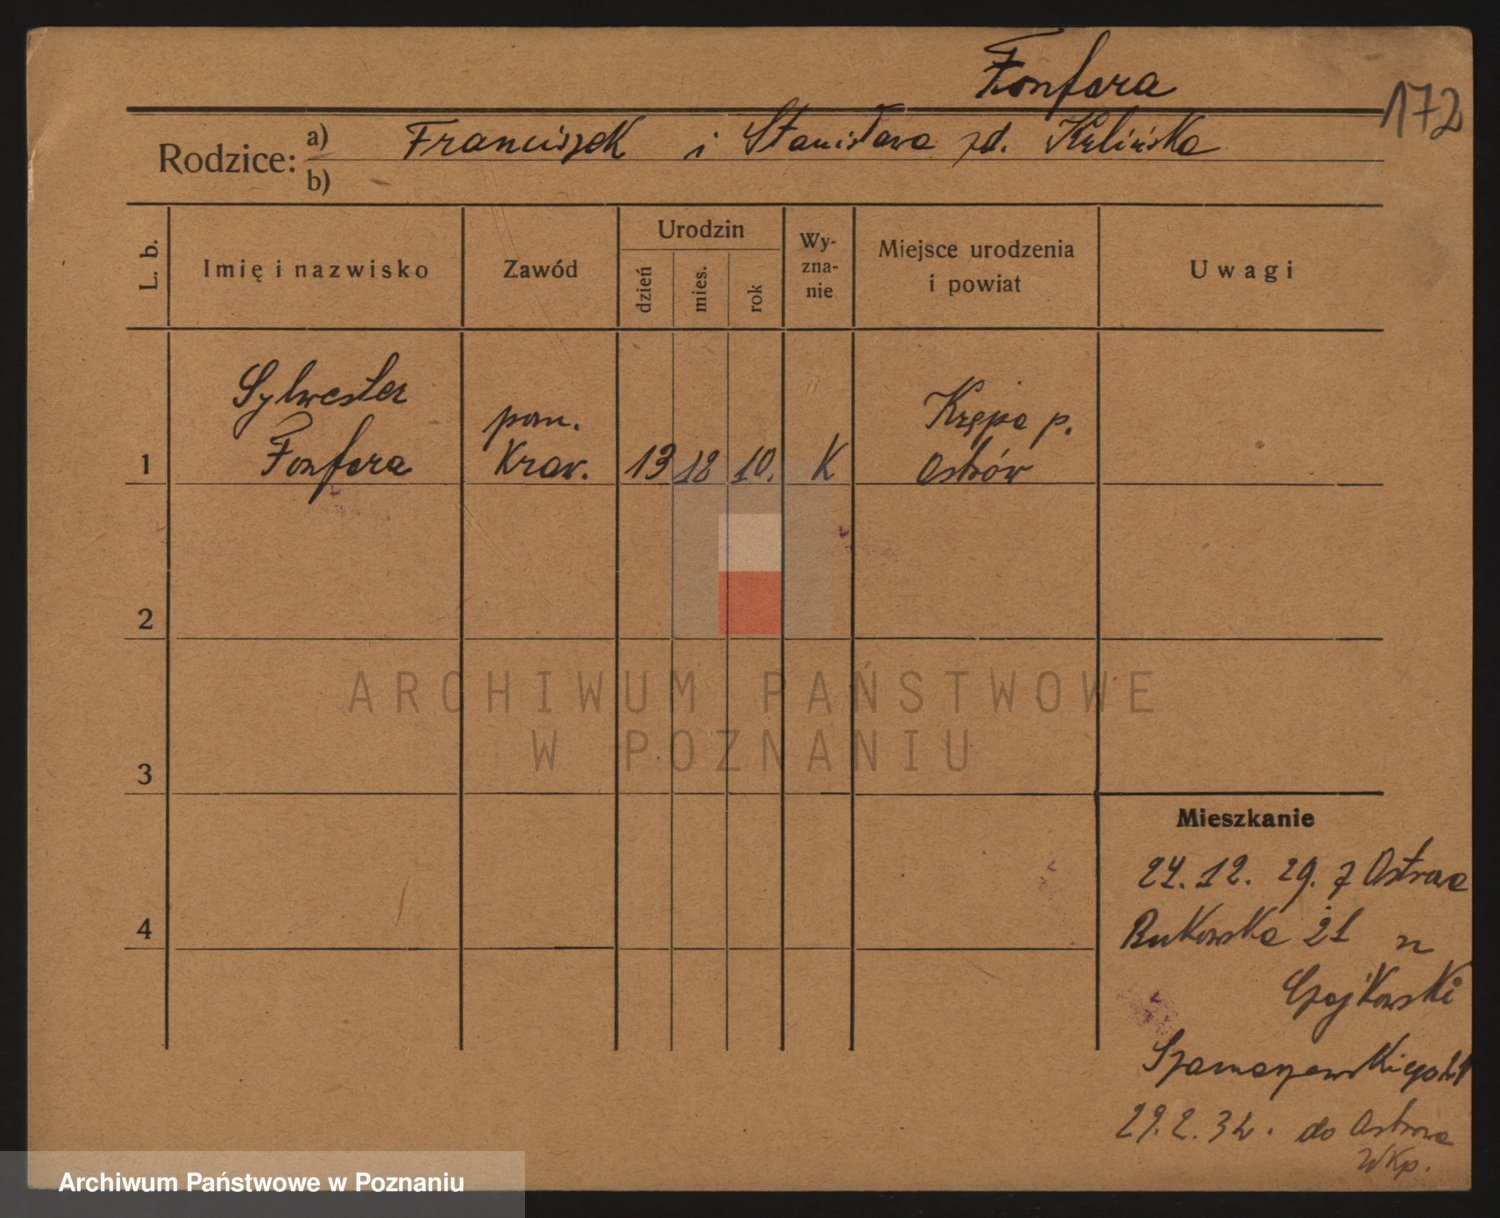 Fonfara
172
Rodzice: a) Franciszek i Stanisława zd. Kulińska
b)
L. b.
Imię i nazwisko
Zawód
Urodzin
dzień
mies.
rok
Wy-
zna-
nie
Miejsce urodzenia
i powiat
Uwagi
Sylwester
Fonfara
pom.
Kraw.
13 12 10. K
Krępa p.
Ostrów
1
2
3
4
ARCHIWUM PAŃSTWOWE
W POZNANIU
Mieszkanie
24. 12. 29. z Ostrowa
Bukowska 21 n
Czajkowski
Szamarzewskiego 21
29. 2. 32. do Ostrowa
Wkp.
Archiwum Państwowe w Poznaniu